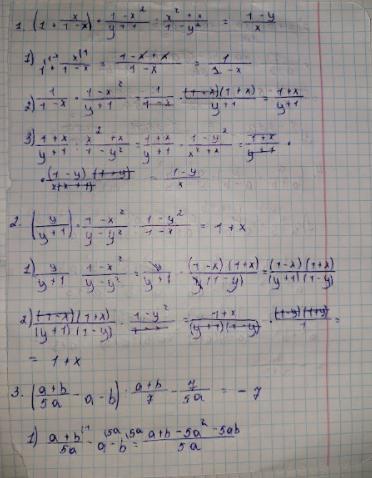 1. (1 + x/(1-x)) · (1-x²)/(y+1) : (x²+x)/(1-y²) = (1-y)/x
1) 1 + x/(1-x) = (1-x+x)/(1-x) = 1/(1-x)
2) 1/(1-x) · (1-x²)/(y+1) = 1/(1-x) · ((1-x)(1+x))/(y+1) = (1+x)/(y+1)
3) (1+x)/(y+1) : (x²+x)/(1-y²) = (1+x)/(y+1) · (1-y²)/(x²+x) = (1+x)/(y+1) ·
· ((1-y)(1+y))/(x(x+1)) = (1-y)/x
2. (y/(y+1)) · (1-x²)/(y-y²) · (1-y²)/(1-x) = 1+x
1) y/(y+1) · (1-x²)/(y-y²) = y/(y+1) · ((1-x)(1+x))/(y(1-y)) = ((1-x)(1+x))/((y+1)(1-y))
2) ((1-x)(1+x))/((y+1)(1-y)) · (1-y²)/(1-x) = (1+x)/((y+1)(1-y)) · ((1-y)(1+y))/1 =
= 1+x
3. ((a+b)/5a - a - b) · (a+b)/7 - 7/5a = -7
1) (a+b)/5a - a - b = (a+b-5a²-5ab)/5a